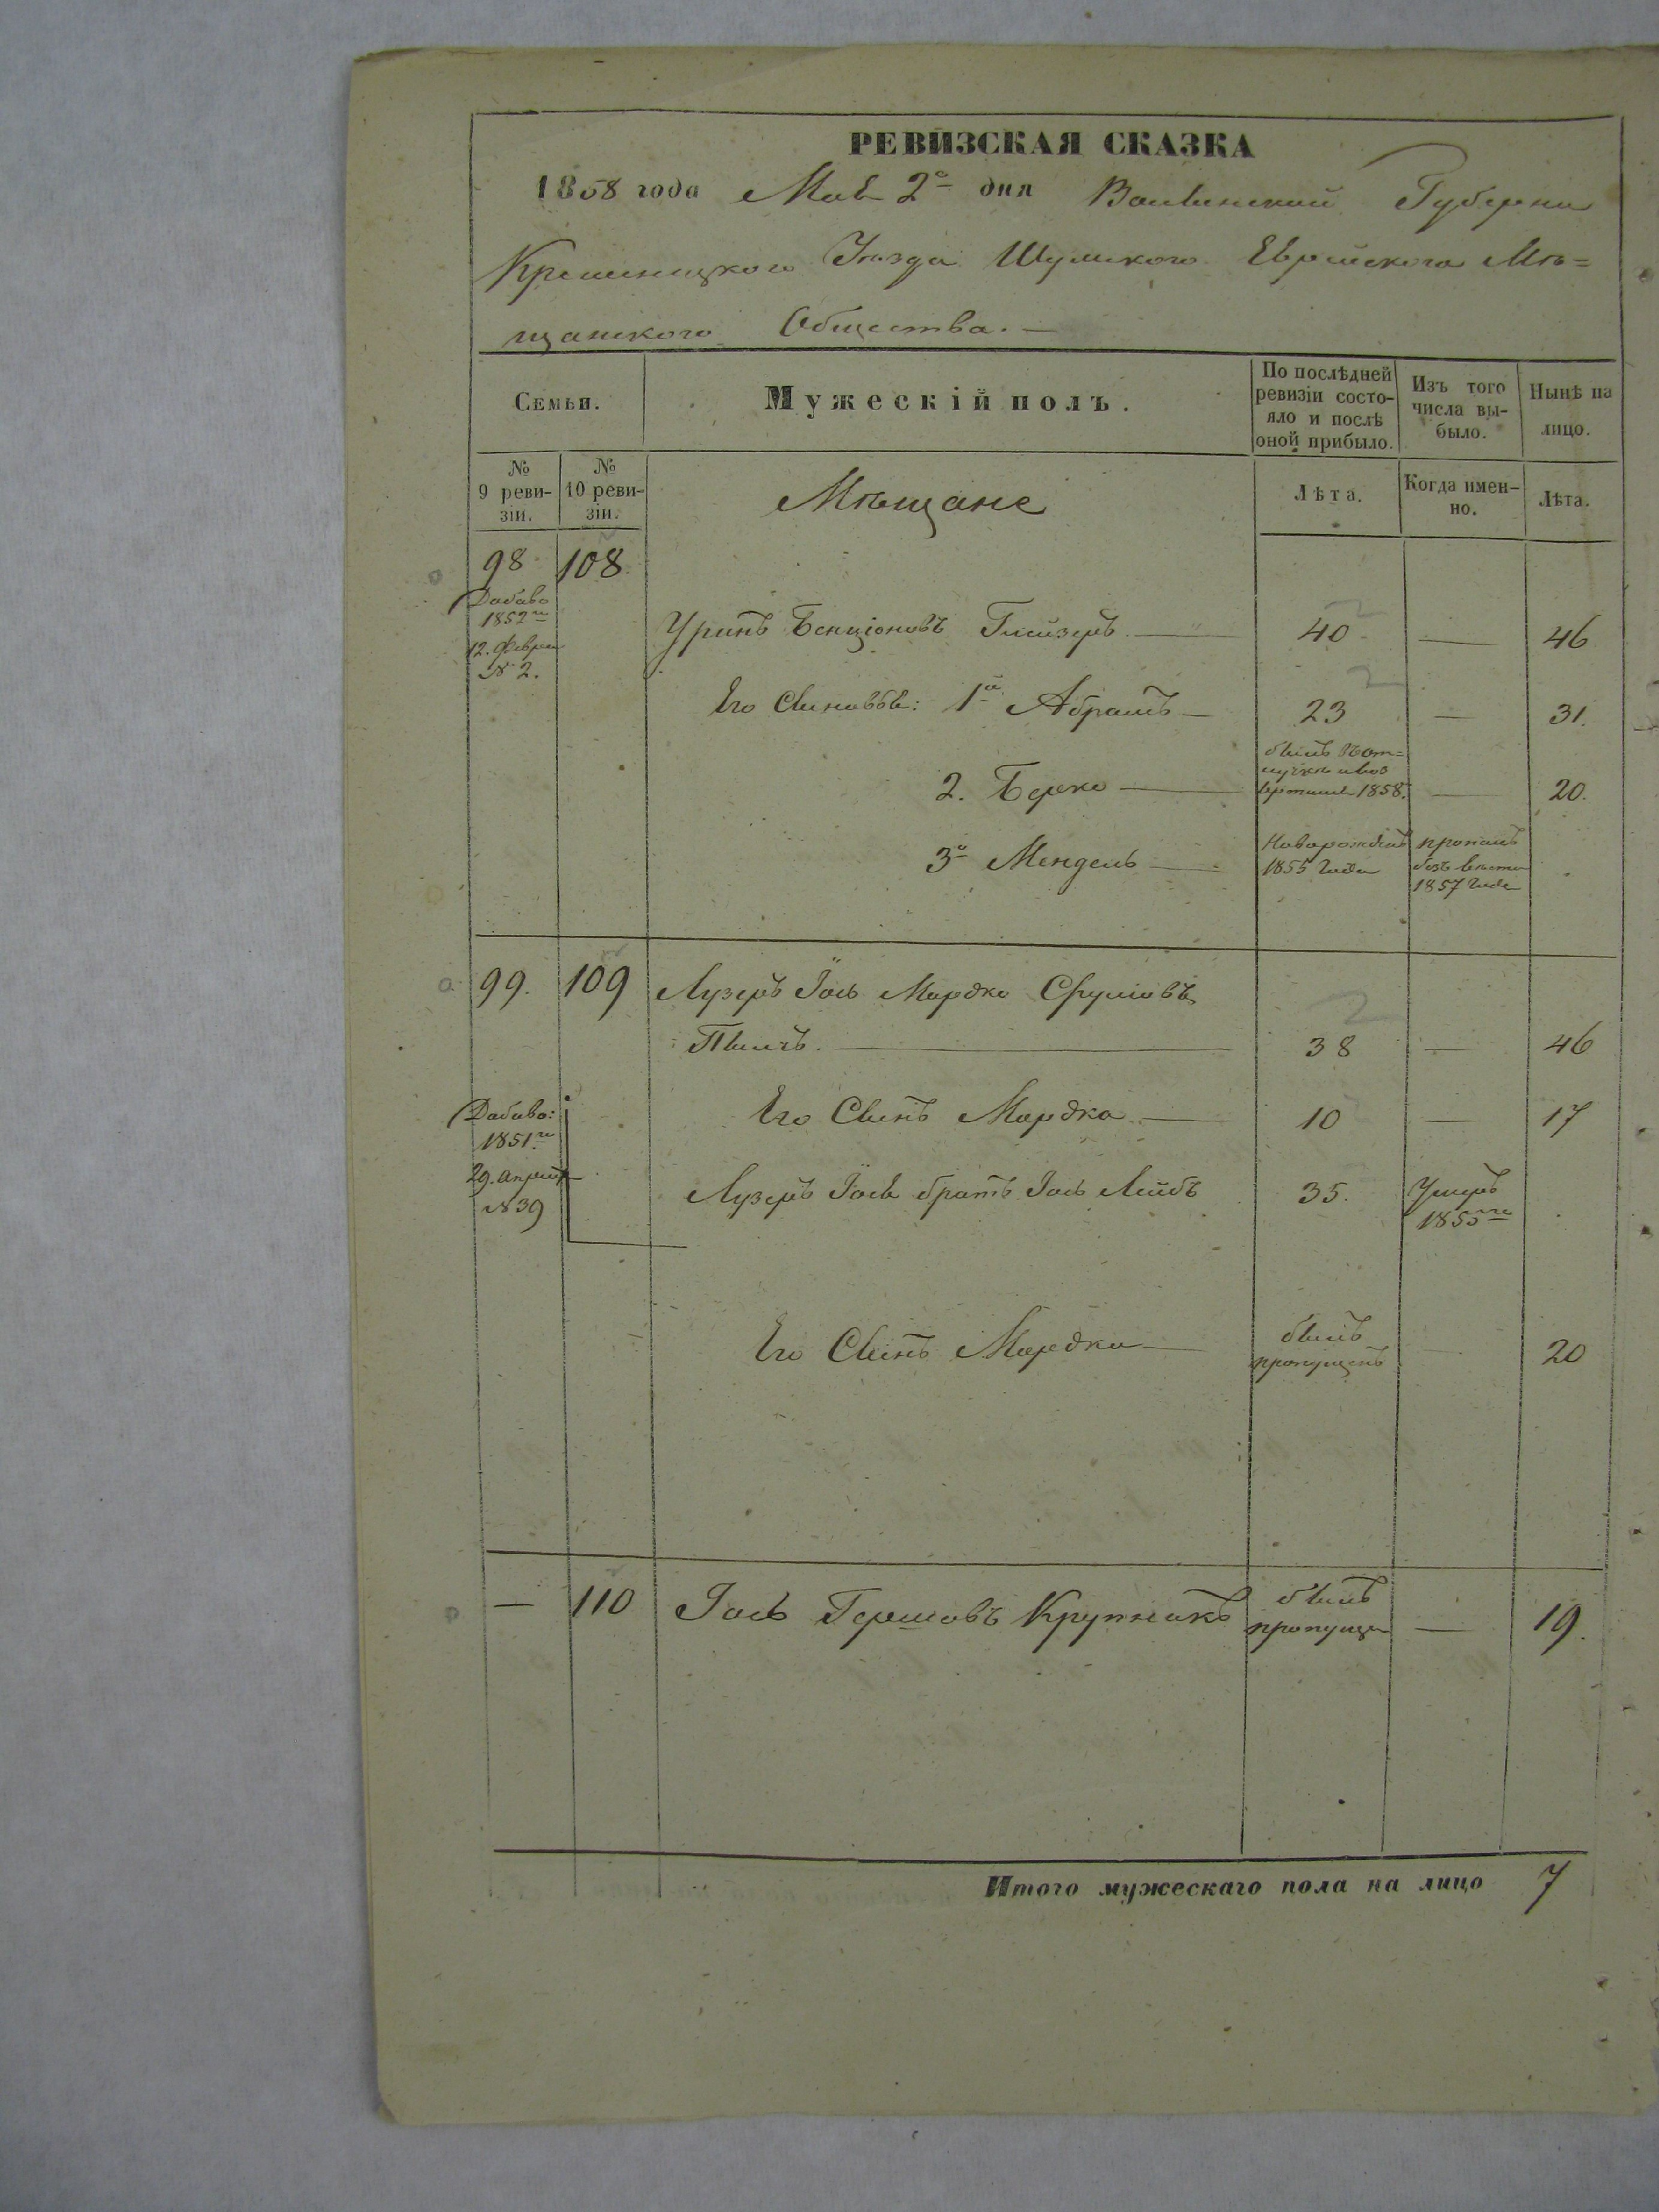 РЕВИЗСКАЯ СКАЗКА
1858 года Мая 2го дня Волынской Губернии
Кременецкого Уѣзда Шумского Еврейского Мѣ=
щанского Общества. —
Семьи.
Мужескій полъ.
По послѣдней ревизіи состо-
яло и послѣ оной прибыло.
Изъ того числа вы-
было.
Нынѣ на лицо.
№ 9 реви-
зіи.
№ 10 реви-
зіи.
Мѣщане
Лѣта.
Когда имен-
но.
Лѣта.
98 108
Добаво
1852го
12. Февра
№ 2.
Бенціоновъ — 40 — 46
Его Сыновья: 1й Абрамъ — 23 — 31.
2. Берко — былъ въ от=
лучкѣ и воз
1858. — 20.
3й Мендель — Новорожденъ 1855 года пропалъ безъ вести 1857 года
99. 109 Лузеръ Іось Мордко Сруліовъ
— 38 — 46
Добаво:
1851го
29. Апреля
№ 39
Его Сынъ Мордко — 10 — 17
Лузеръ Іося братъ Іось Лейбъ 35. Умеръ 1855го
Его Сынъ Мордко — былъ пропущенъ — 20
— 110 Іось Гершовъ Крупникъ былъ пропущен — 19.
Итого мужескаго пола на лицо 7